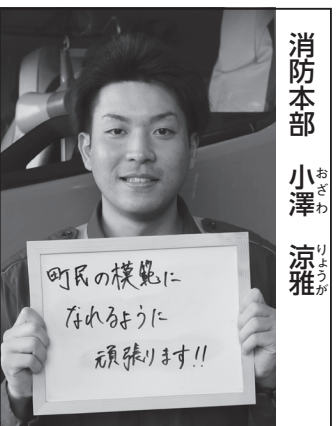 消防本部 小澤 涼雅
おざわ りょうが
町民の模範に
なれるように
頑張ります!!